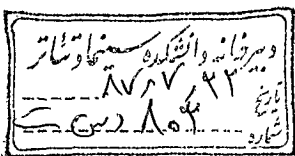 دبیرخانه دانشکده سینما و تئاتر
تاریخ ۸۷،۷،۲۳
شماره ۸۰۳